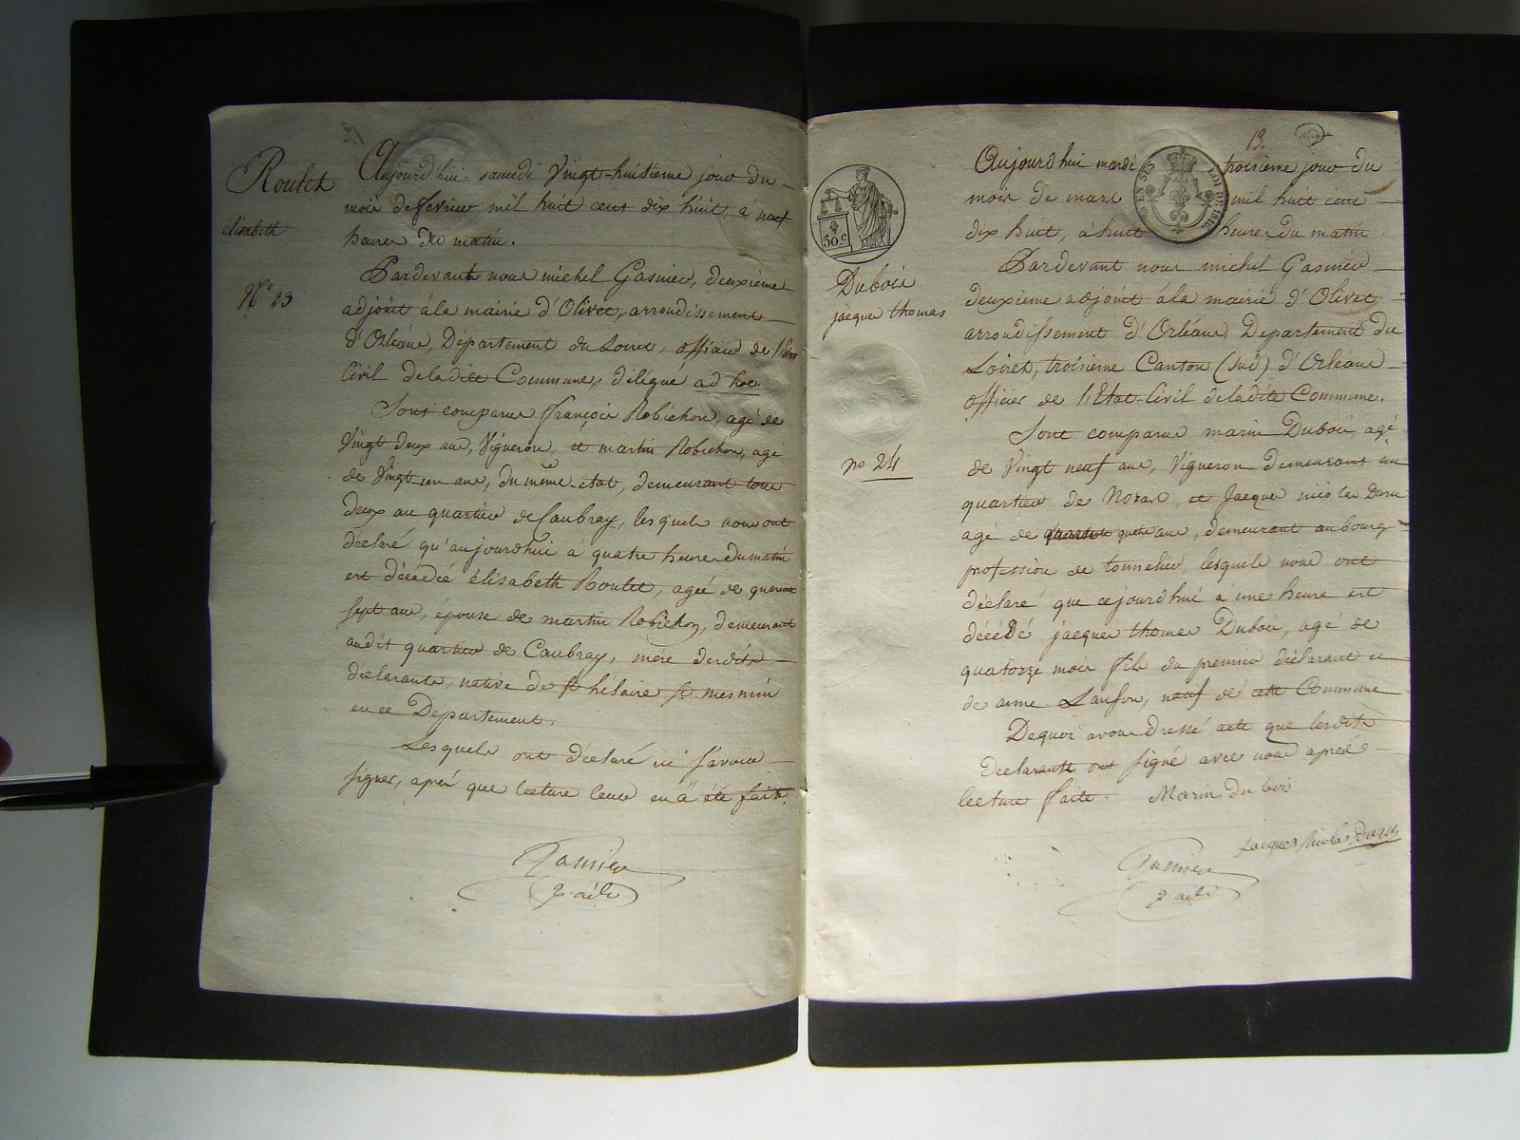 Roulet
elisabeth
N° 23
Aujourd'hui samedi Vingt-huitième jour du
mois de fevrier mil huit cent dix huit, à neuf
heures du matin.
Pardevant nous michel Gasnier, deuxième
adjoint à la mairie d'Olivet, arrondissement
d'Orléans, Département du Loiret, officier de l'état
Civil de la dite Commune, délégué ad hoc.
Sont comparus françois Robichon, agé de
Vingt deux ans, Vigneron, et martin Robichon, agé
de Vingt un ans, du même état, demeurant tous
deux au quartier de Caubray, lesquels nous ont
déclaré qu'aujourdhui à quatre heures du matin
est décédée élisabeth Roulet, agée de quarante
sept ans, épouse de martin Robichon, demeurant
audit quartier de Caubray, mère desdits
déclarants, native de St hilaire St mesmin
en ce Département.
Lesquels ont déclaré ne savoir
signer, après que lecture leur en a été faite.
Gasnier
2e adjt
13.
50 c
EN SUS
Dubois
jacques thomas
no 24
Aujourd'hui mardi troisième jour du
mois de mars mil huit cent
dix huit, à huit heures du matin
Pardevant nous michel Gasnier
deuxième adjoint à la mairie d'Olivet
arrondissement d'Orléans, Département du
Loiret, troisième Canton (sud) d'Orleans
officier de l'Etat-Civil de la dite Commune.
Sont comparus marin Dubois, agé
de Vingt neuf ans, Vigneron demeurant au
quartier de et Jacques nicolas
agé de ans, demeurant au bourg
profession de tonnelier, lesquels nous ont
déclaré que cejourdhui a une heure est
décédé jacques thomas Dubois, agé de
quatorze mois fils du premier déclarant et
de anne né de cette Commune
Dequoi avons dressé acte que lesdits
déclarants ont signé avec nous après
lecture faite. Marin Dubois
Jacques Nicolas
Gasnier
2 adjt